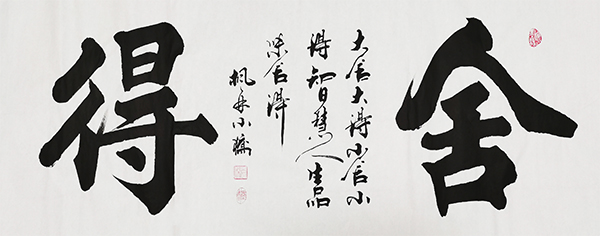 舍
大舍大得小舍小
得智慧人生品
味舍得
枫小
得